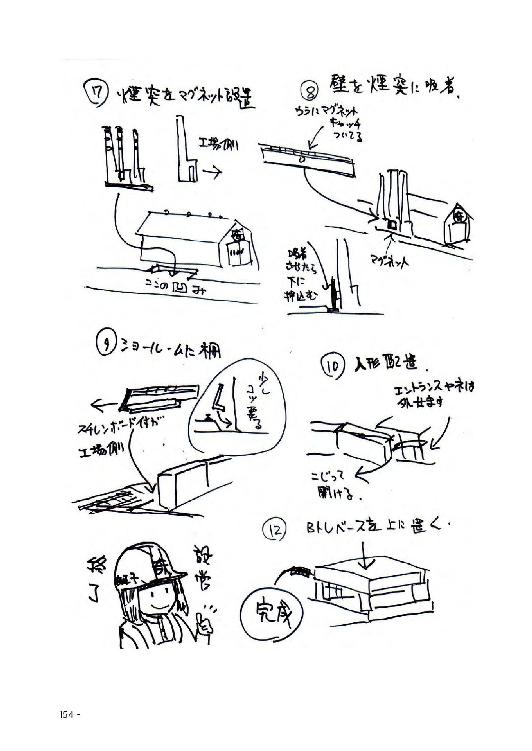 ⑦ 煙突をマグネット設置
工場側
ココの凹み
⑧ 壁を煙突に吸着.
ウラにマグネット
キャッチ
ついてる
マグネット
吸着
させたら
下に
押込む
⑨ ショールームに棚
スチレンボード付が
工場側
少し
コツ要る
⑩ 人形配置.
エントランスや木は
外せます
こじって
開ける.
⑫ BトレベースをLに置く.
完成
設営
終了
154 -